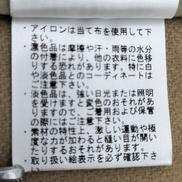 ・アイロンは当て布を使用して下さい。
・濃色品は摩擦や汗・雨等の水分の付着により、他の衣料に色移りする恐れがあります。特に白や淡色品とのコーディネートはご注意下さい。
・淡色品は、強い日光または照明を受けますと変色のおそれがありますので着用および保管にご注意下さい。
・素材の特性上、激しい運動や極度な力が加わると縫い目が開いたりするおそれがあります。
取り扱い絵表示を必ず確認下さい